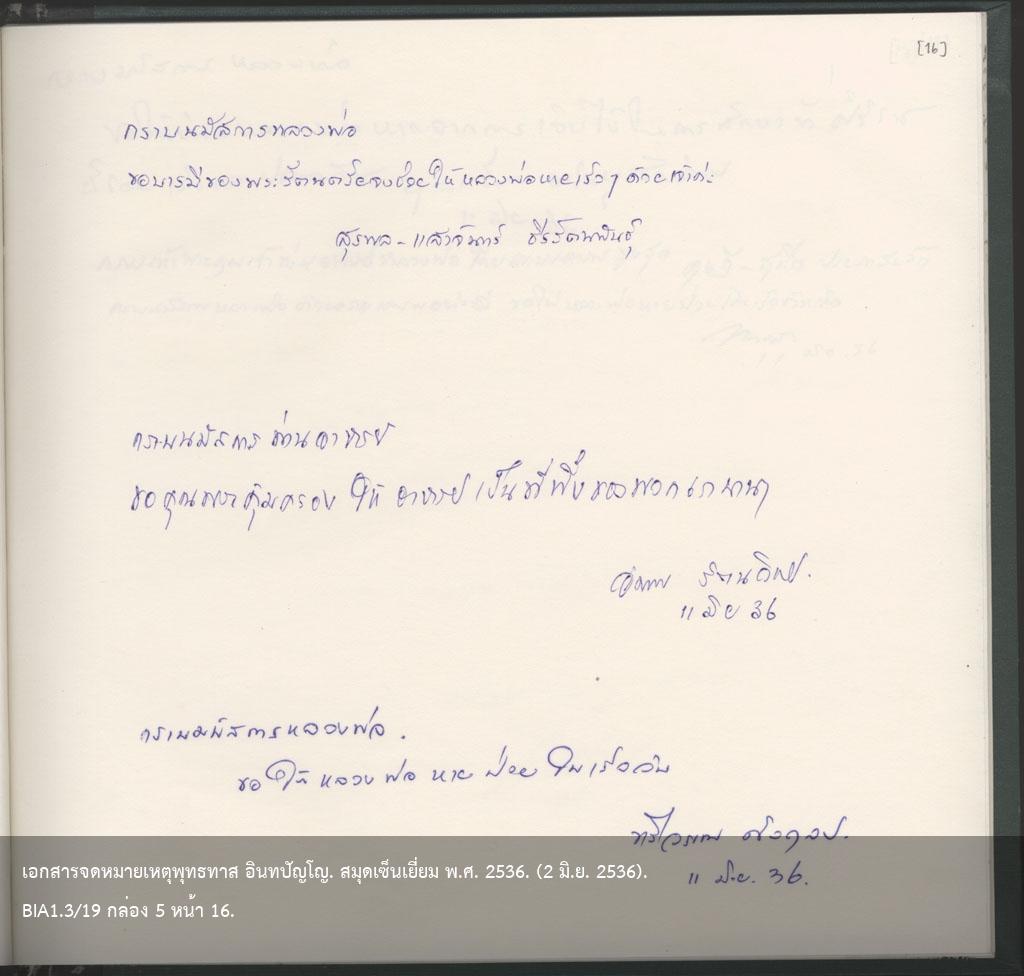 [16]
กราบนมัสการหลวงพ่อ
ขอบารมีของพระรัตนตรัยจงช่วยให้หลวงพ่อหายเร็วๆ ด้วยเจ้าค่ะ
สุรพล - แสงจันทร์ ธีรรัตนพันธุ์
กราบนมัสการ ท่านอาจารย์
ขอคุณพระคุ้มครอง ให้ อาจารย์ เป็นที่พึ่งของพวกเรานานๆ
รัตนดิลก.
11 มิย 36
กราบนมัสการหลวงพ่อ.
ขอให้ หลวงพ่อ หาย ป่วย ในเร็ววัน
11 มิ.ย. 36.
เอกสารจดหมายเหตุพุทธทาส อินทปัญโญ. สมุดเซ็นเยี่ยม พ.ศ. 2536. (2 มิ.ย. 2536).
BIA1.3/19 กล่อง 5 หน้า 16.